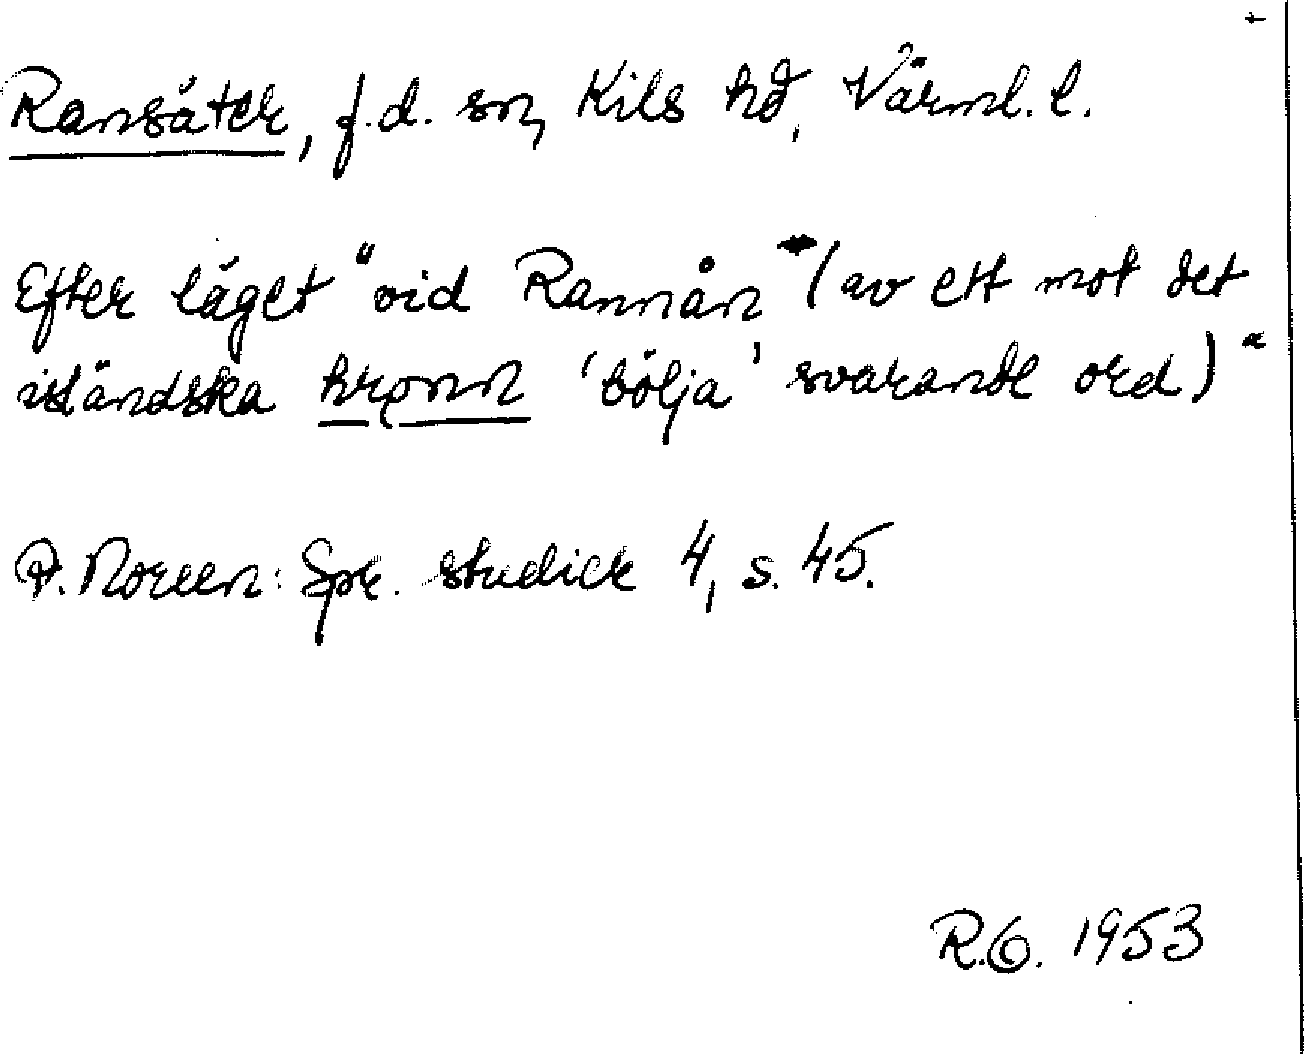 Ransäter, f.d. sn, Kils hd, Värml. l.
Efter läget "vid Rannån (av ett mot det
isländska hrǫnn 'bölja' svarande ord)"
A. Noreen: Spr. studier 4, s. 45.
R.G. 1953